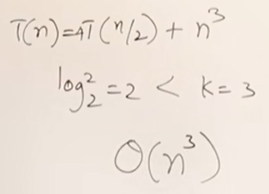 T(n)=4T(n/2) + n³
log₂² = 2 < k = 3
O(n³)